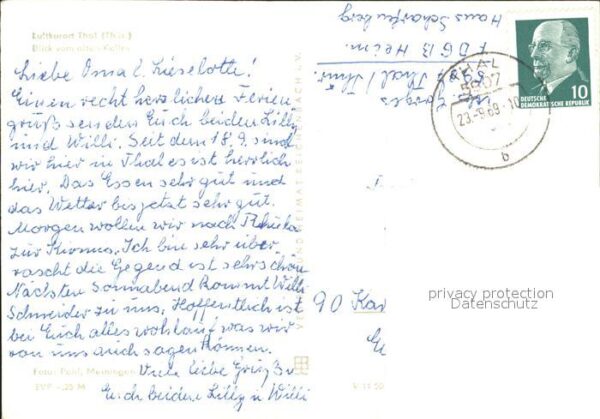 Luftkurort Thal (Thür.)
Blick vom alten Keller
Liebe Oma u. Lieselotte!
Einen recht herzlichen Ferien
gruß senden Euch beiden Lilly
und Willi. Seit dem 18.9. sind
wir hier in Thal es ist herrlich
hier. Das Essen sehr gut und
das Wetter bis jetzt sehr gut.
Morgen wollen wir nach
zur Kirmes. Ich bin sehr über
rascht die Gegend ist sehr schön
Nächsten Sonnabend kommt Willi
Schneider zu uns. Hoffentlich ist
bei Euch alles wohlauf was wir
von uns auch sagen können.
Viele liebe Grüße
Euch beiden Lilly u Willi
Foto: Pohl, Meiningen
EVP -,25 M
V 11 50
Haus Scharfenberg
F D G B Heim.
Thal / Thür.
THAL
5907
23.-9.69.-10
b
10
DEUTSCHE
DEMOKRATISCHE REPUBLIK
90 Kar
privacy protection
Datenschutz